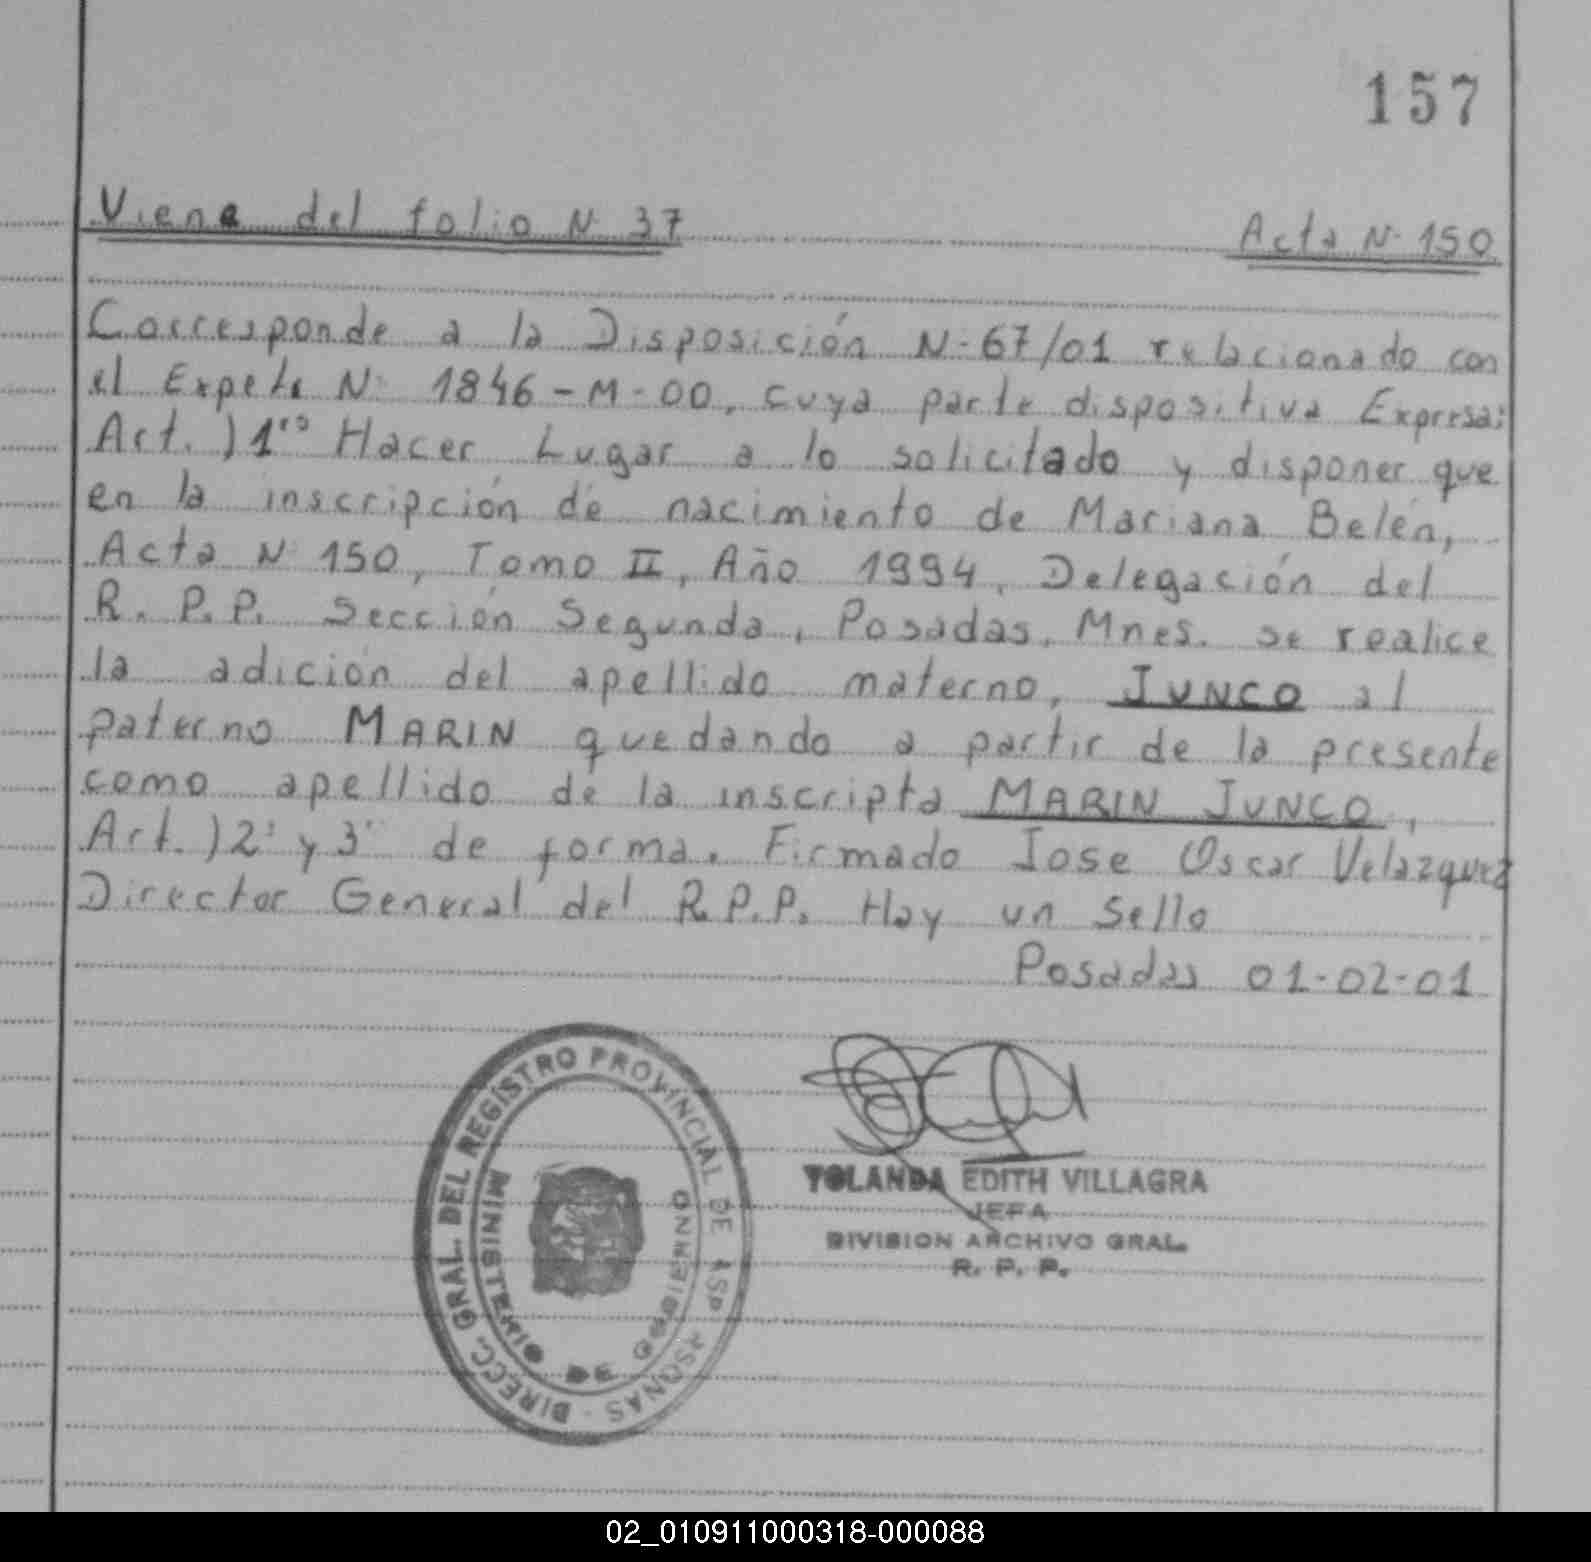 157
Viene del folio N° 37 Acta N° 150
Corresponde a la Disposición N° 67/01 relacionado con
el Expete N° 1846-M-00, cuya parte dispositiva Expresa:
Art.) 1ro Hacer Lugar a lo solicitado y disponer que
en la inscripción de nacimiento de Mariana Belén,
Acta N° 150, Tomo II, Año 1994, Delegación del
R.P.P. Sección Segunda, Posadas, Mnes. se realice
la adición del apellido materno, JUNCO al
paterno MARIN quedando a partir de la presente
como apellido de la inscripta MARIN JUNCO,
Art.) 2° y 3° de forma. Firmado Jose Oscar Velazquez
Director General del R.P.P. Hay un Sello
Posadas 01-02-01
DIRECC. GRAL. DEL REGISTRO PROVINCIAL DE LAS PERSONAS -
MINISTERIO DE GOBIERNO
YOLANDA EDITH VILLAGRA
JEFA
DIVISION ARCHIVO GRAL.
R. P. P.
02_010911000318-000088